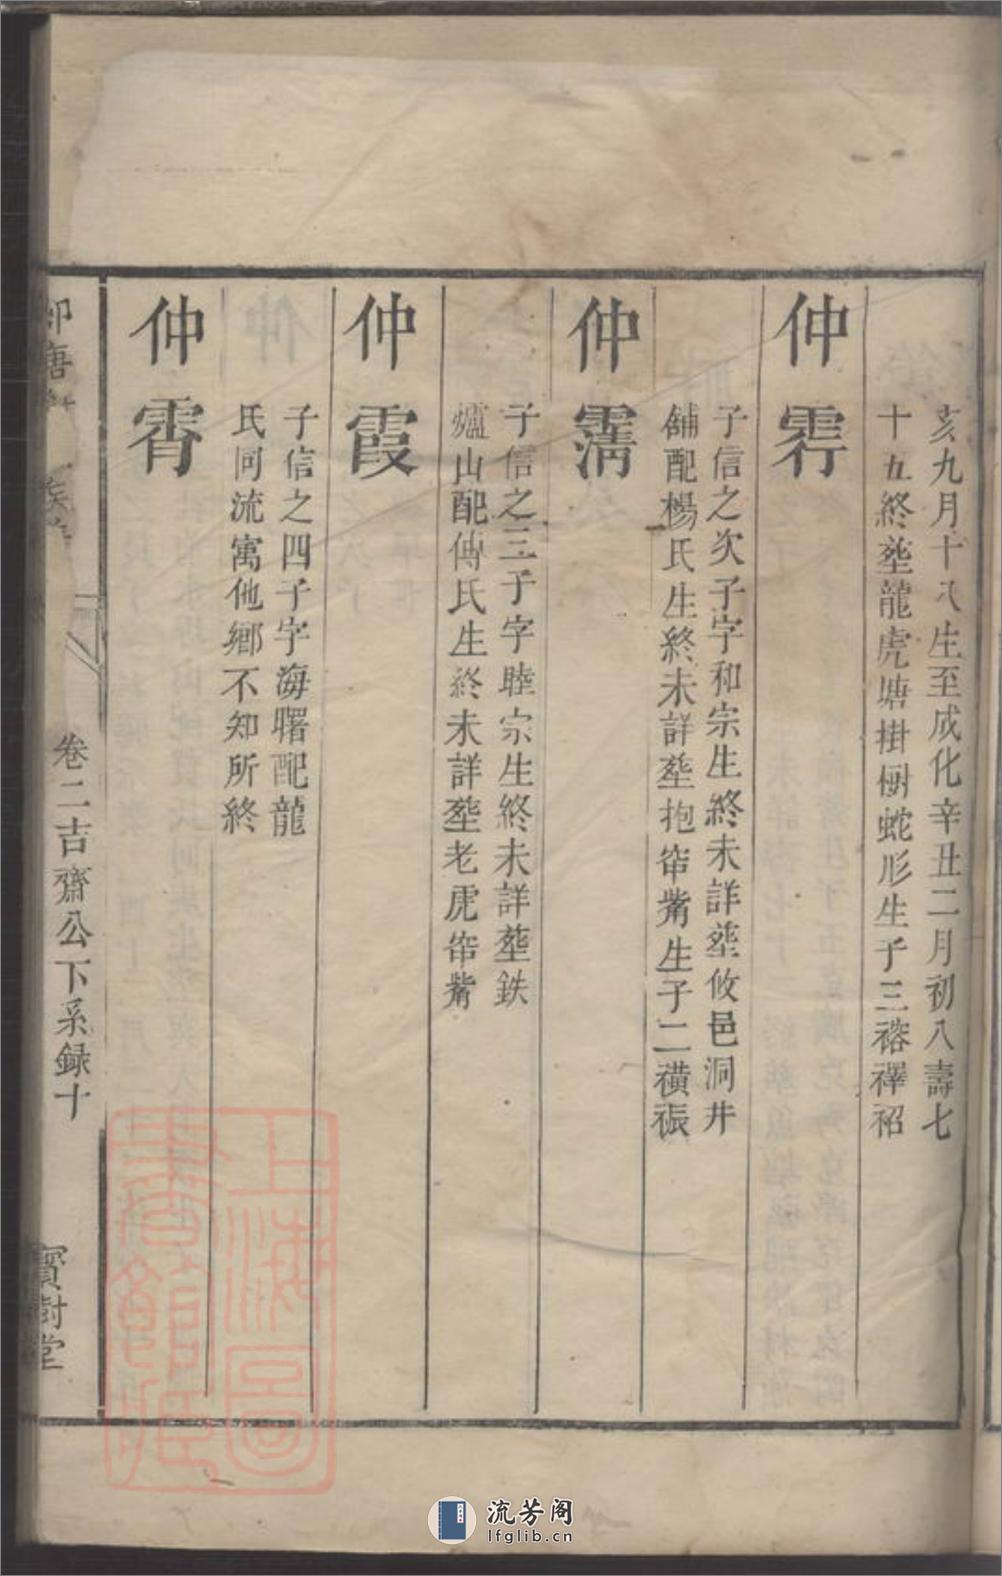 亥九月十八生至成化辛丑二月初八壽七
十五終塟龍虎塘掛橱蛇形生子三𥙿禪祒
仲雱
子信之次子字和宗生終未詳塟攸邑洞井
舖配楊氏生終未詳塟抱峀觜生子二横振
仲霱
子信之三子字睦宗生終未詳塟鉄
爐山配傅氏生終未詳塟老虎峀觜
仲霞
子信之四子字海曙配龍
氏同流寓他鄉不知所終
仲霄
卷二吉齋公下系録十
寳樹堂
上海圖書館藏
流芳阁
lfglib.cn